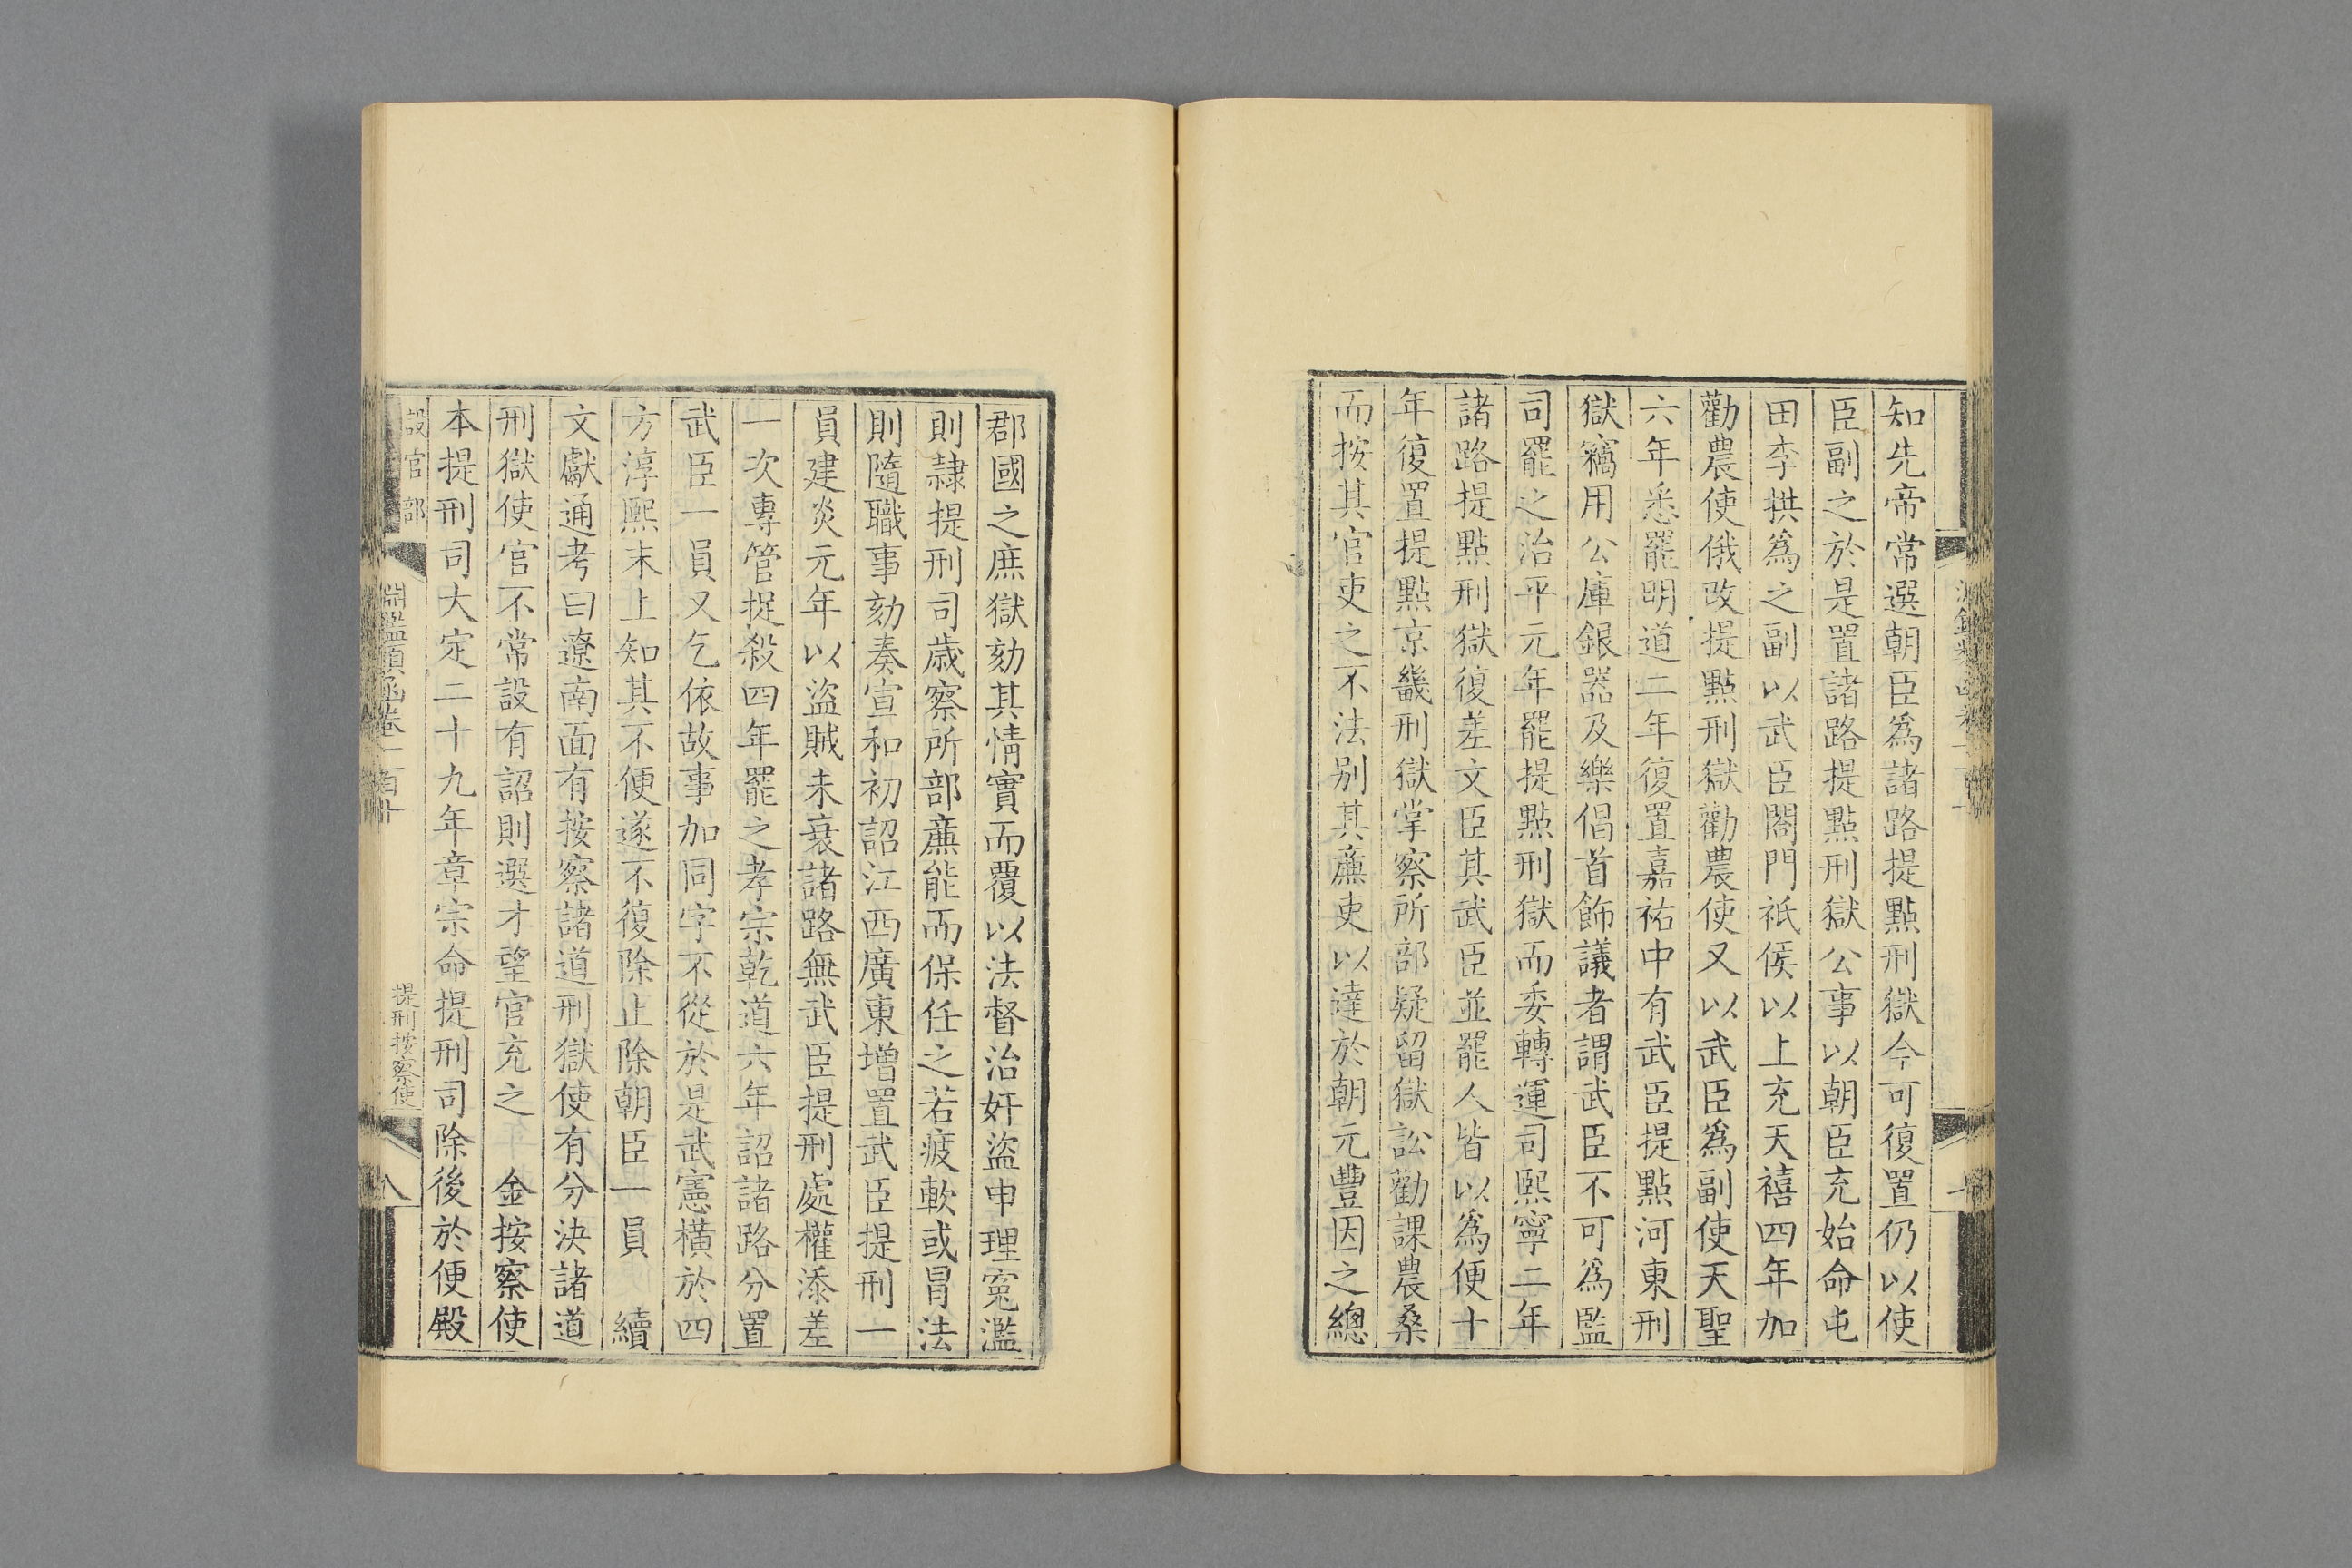 知先帝常選朝臣爲諸路提點刑獄今可復置仍以使
臣副之於是置諸路提點刑獄公事以朝臣充始命屯
田李拱爲之副以武臣閤門祇候以上充天禧四年加
勸農使俄改提點刑獄勸農使又以武臣爲副使天聖
六年悉罷明道二年復置嘉祐中有武臣提點河東刑
獄竊用公庫銀器及樂倡首飾議者謂武臣不可爲監
司罷之治平元年罷提點刑獄而委轉運司熙寧二年
諸路提點刑獄復差文臣其武臣並罷人皆以爲便十
年復置提點京畿刑獄掌察所部疑留獄訟勸課農桑
而按其官吏之不法別其廉吏以達於朝元豐因之總
郡國之庶獄劾其情實而覆以法督治奸盜申理寃濫
則隷提刑司歲察所部廉能而保任之若疲軟或冒法
則隨職事劾奏宣和初詔江西廣東增置武臣提刑一
員建炎元年以盜賊未衰諸路無武臣提刑處權添差
一次專管捉殺四年罷之孝宗乾道六年詔諸路分置
武臣一員又乞依故事加同字不從於是武憲橫於四
方淳熙末上知其不便遂不復除止除朝臣一員 續
文獻通考曰遼南面有按察諸道刑獄使有分決諸道
刑獄使官不常設有詔則選才望官充之 金按察使
本提刑司大定二十九年章宗命提刑司除後於便殿
設官部 淵鑑類函卷一百十 提刑按察使 八